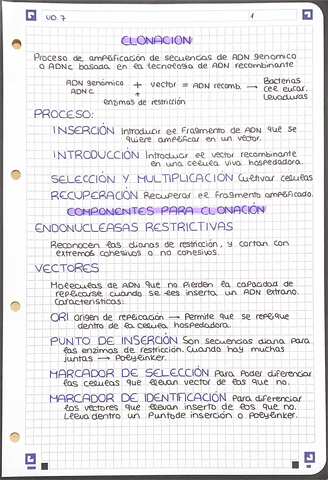 UD. 7
1
CLONACIÓN
Proceso de amplificación de secuencias de ADN genómico
o ADNc basada en la tecnología de ADN recombinante
ADN genómico + vector = ADN recomb. → Bacterias
ADNc cél. eucar.
+ Levaduras
enzimas de restricción
PROCESO:
INSERCIÓN Introducir el fragmento de ADN que se
quiere amplificar en un vector.
INTRODUCCIÓN Introducir el vector recombinante
en una célula viva hospedadora.
SELECCIÓN Y MULTIPLICACIÓN Cultivar células
RECUPERACIÓN Recuperar el fragmento amplificado.
COMPONENTES PARA CLONACIÓN
ENDONUCLEASAS RESTRICTIVAS
Reconocen las dianas de restricción, y cortan con
extremos cohesivos o no cohesivos.
VECTORES
Moléculas de ADN que no pierden la capacidad de
replicarse cuando se les inserta un ADN extraño.
Características:
ORI Origen de replicación → Permite que se replique
dentro de la célula hospedadora.
PUNTO DE INSERCIÓN Son secuencias diana para
las enzimas de restricción. Cuando hay muchas
juntas → Polylinker.
MARCADOR DE SELECCIÓN Para poder diferenciar
las células que llevan vector de las que no.
MARCADOR DE IDENTIFICACIÓN Para diferenciar
los vectores que llevan inserto de los que no.
Lleva dentro un Punto de inserción o Polylinker.